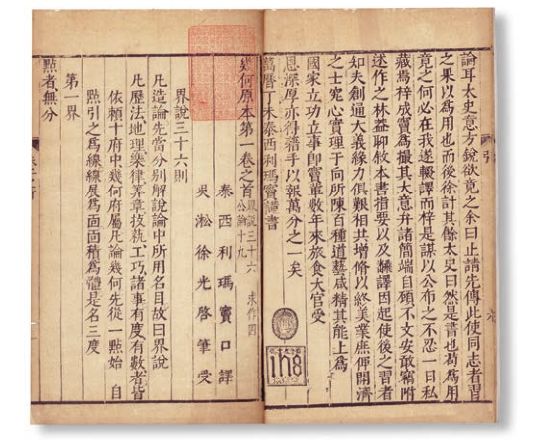 論耳太史意方銳欲竟之余曰止請先傳此使同志者習
之果以爲用也而後徐計其餘太史曰然是書也苟爲用
竟之何必在我遂輟譯而梓是謀以公布之不忍一日私
藏焉梓成竇爲撮其大意弁諸簡端自顧不文安敢竊附
述作之林蓋聊敘本書指要以及翻譯因起使後之習者
知夫創通大義緣力俱艱相共增修以終美業庶俾開濟
之士究心實理于向所陳百種道藝咸精其能上爲
國家立功立事即竇輩數年來旅食大官受
恩深厚亦得藉手以報萬分之一矣
萬曆丁未泰西利瑪竇謹書
引
IHS
幾何原本第一卷之首 界說三十六 求作四 公論十九
泰西利瑪竇口譯
吳淞徐光啓筆受
界說三十六則
凡造論先當分別解說論中所用名目故曰界說
凡歷法地理樂律算章技執工巧諸事有度有數者皆
依賴十府中幾何府屬凡論幾何先從一點始自
點引之爲線線展爲面面積爲體是名三度
第一界
點者無分